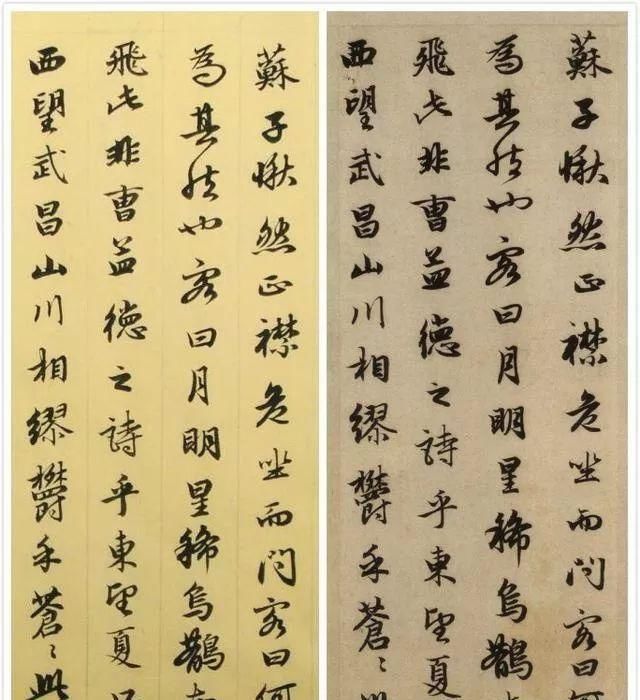 蘇子愀然正襟危坐而問客曰何
為其然也客曰月明星稀烏鵲
飛此非曹孟德之詩乎東望夏
西望武昌山川相繆鬱乎蒼〻此
蘇子愀然正襟危坐而問客曰何
為其然也客曰月明星稀烏鵲
飛此非曹孟德之詩乎東望夏
西望武昌山川相繆鬱乎蒼〻此